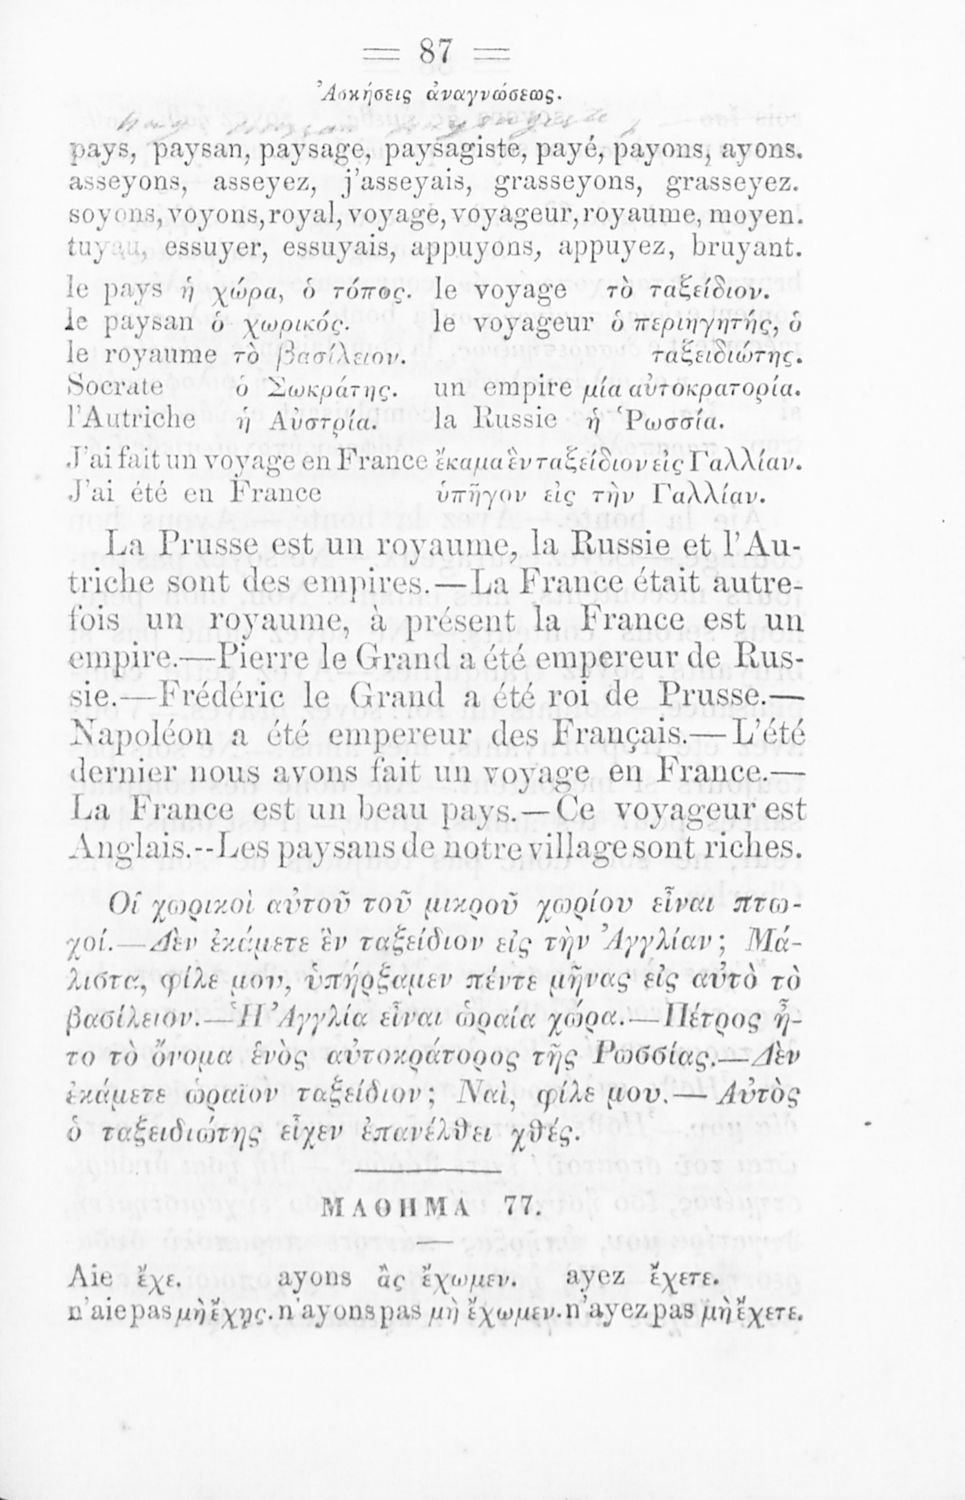 87
Ἀσκήσεις ἀναγνώσεως.
pays, paysan, paysage, paysagiste, payé, payons, ayons.
asseyons, asseyez, j'asseyais, grasseyons, grasseyez.
soyons, voyons, royal, voyage, voyageur, royaume, moyen.
tuyau, essuyer, essuyais, appuyons, appuyez, bruyant.
le pays ἡ χώρα, ὁ τόπος. le voyage τὸ ταξείδιον.
le paysan ὁ χωρικός. le voyageur ὁ περιηγητής, ὁ
le royaume τὸ βασίλειον. ταξειδιώτης.
Socrate ὁ Σωκράτης. un empire μία αὐτοκρατορία.
l'Autriche ἡ Αὐστρία. la Russie ἡ Ῥωσσία.
J'ai fait un voyage en France ἔκαμα ἓν ταξείδιον εἰς Γαλλίαν.
J'ai été en France ὑπῆγον εἰς τὴν Γαλλίαν.
La Prusse est un royaume, la Russie et l'Au-
triche sont des empires.—La France était autre-
fois un royaume, à présent la France est un
empire.—Pierre le Grand a été empereur de Rus-
sie.—Frédéric le Grand a été roi de Prusse.—
Napoléon a été empereur des Français.—L'été
dernier nous avons fait un voyage en France.—
La France est un beau pays.—Ce voyageur est
Anglais.--Les paysans de notre village sont riches.
Οἱ χωρικοὶ αὐτοῦ τοῦ μικροῦ χωρίου εἶναι πτω-
χοί.—Δὲν ἐκάμετε ἓν ταξείδιον εἰς τὴν Ἀγγλίαν; Μά-
λιστα, φίλε μου, ὑπήρξαμεν πέντε μῆνας εἰς αὐτὸ τὸ
βασίλειον.—Ἡ Ἀγγλία εἶναι ὡραία χώρα.—Πέτρος ἦ-
το τὸ ὄνομα ἑνὸς αὐτοκράτορος τῆς Ῥωσσίας.—Δὲν
ἐκάμετε ὡραῖον ταξείδιον; Ναὶ, φίλε μου.—Αὐτὸς
ὁ ταξειδιώτης εἶχεν ἐπανέλθει χθές.
ΜΑΘΗΜΑ 77.
Aie ἔχε. ayons ἂς ἔχωμεν. ayez ἔχετε.
n'aie pas μὴ ἔχῃς. n'ayons pas μὴ ἔχωμεν. n'ayez pas μὴ ἔχετε.